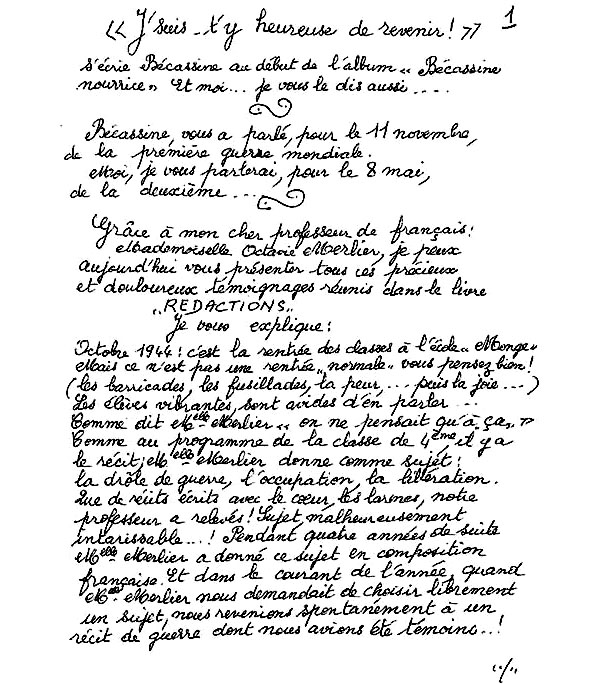 « J'suis-t'y heureuse de revenir! » 1
s'écrie Bécassine au début de l'album « Bécassine
nourrice » Et moi... je vous le dis aussi ....
Bécassine, vous a parlé, pour le 11 novembre,
de la première guerre mondiale.
Moi, je vous parlerai, pour le 8 mai,
de la deuxième ...
Grâce à mon cher professeur de français:
Mademoiselle Octavie Merlier, je peux
aujourd'hui vous présenter tous ces précieux
et douloureux témoignages réunis dans le livre
"REDACTIONS"
Je vous explique:
Octobre 1944: c'est la rentrée des classes à l'école « Monge »
Mais ce n'est pas une rentrée "normale" vous pensez bien!
(les barricades, les fusillades, la peur,... puis la joie...)
Les élèves vibrantes, sont avides d'en parler...
Comme dit Melle Merlier « on ne pensait qu'à ça. »
Comme au programme de la classe de 4ème, il y a
le récit; Melle Merlier donne comme sujet:
la drôle de guerre, l'occupation, la libération.
Que de récits écrits avec le cœur, les larmes, notre
professeur a relevés! Sujet, malheureusement
intarissable...! Pendant quatre années de suite
Melle Merlier a donné ce sujet en composition
française. Et dans le courant de l'année, quand
Melle Merlier nous demandait de choisir librement
un sujet, nous revenions spontanément à un
récit de guerre dont nous avions été témoins..!
"/"